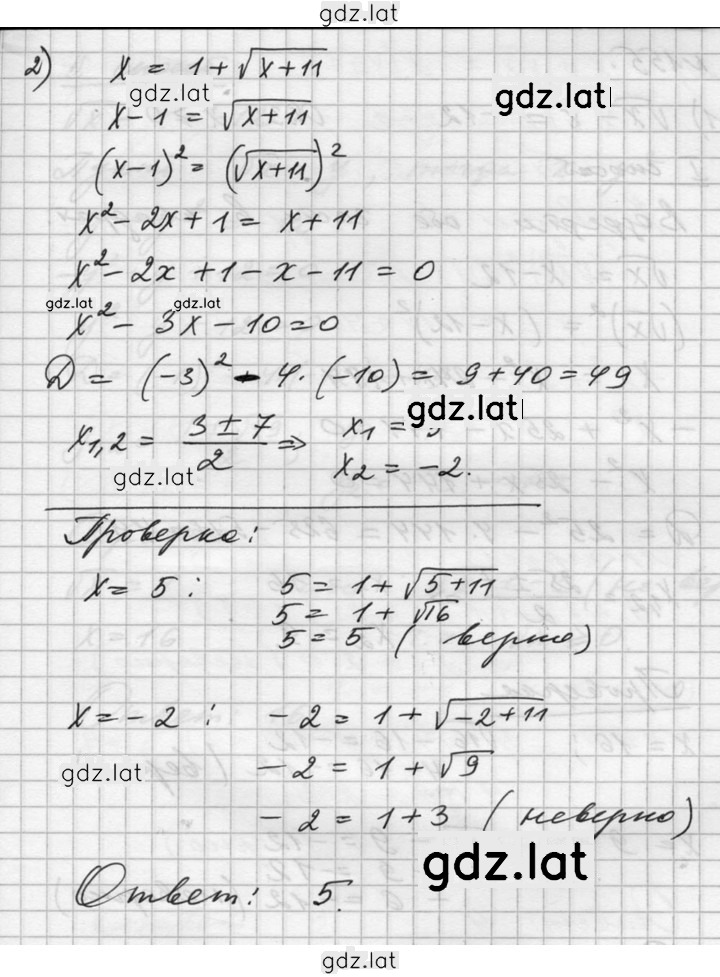 gdz.lat
2) x = 1 + √(x+11)
gdz.lat
gdz.lat
x-1 = √(x+11)
(x-1)² = (√(x+11))²
x² - 2x + 1 = x + 11
x² - 2x + 1 - x - 11 = 0
gdz.lat gdz.lat
x² - 3x - 10 = 0
D = (-3)² - 4·(-10) = 9 + 40 = 49
gdz.lat
x₁,₂ = (3 ± 7)/2 ⇒ x₁ =
x₂ = -2.
gdz.lat
Проверка:
x = 5 : 5 = 1 + √(5+11)
5 = 1 + √16
5 = 5 (верно)
x = -2 : -2 = 1 + √(-2+11)
gdz.lat
-2 = 1 + √9
-2 = 1 + 3 (неверно)
gdz.lat
Ответ: 5.
gdz.lat